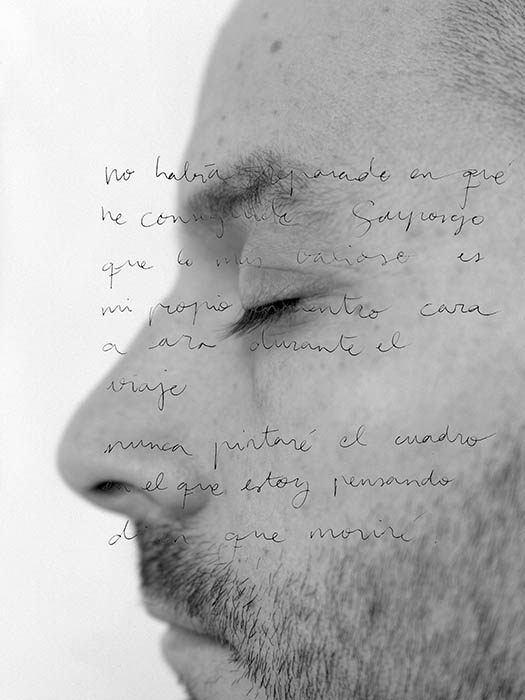 no habría reparado en qué
he consistido Supongo
que lo más valioso es
mi propio encuentro cara
a cara durante el
viaje
nunca pintaré el cuadro
en el que estoy pensando
dicen que moriré.